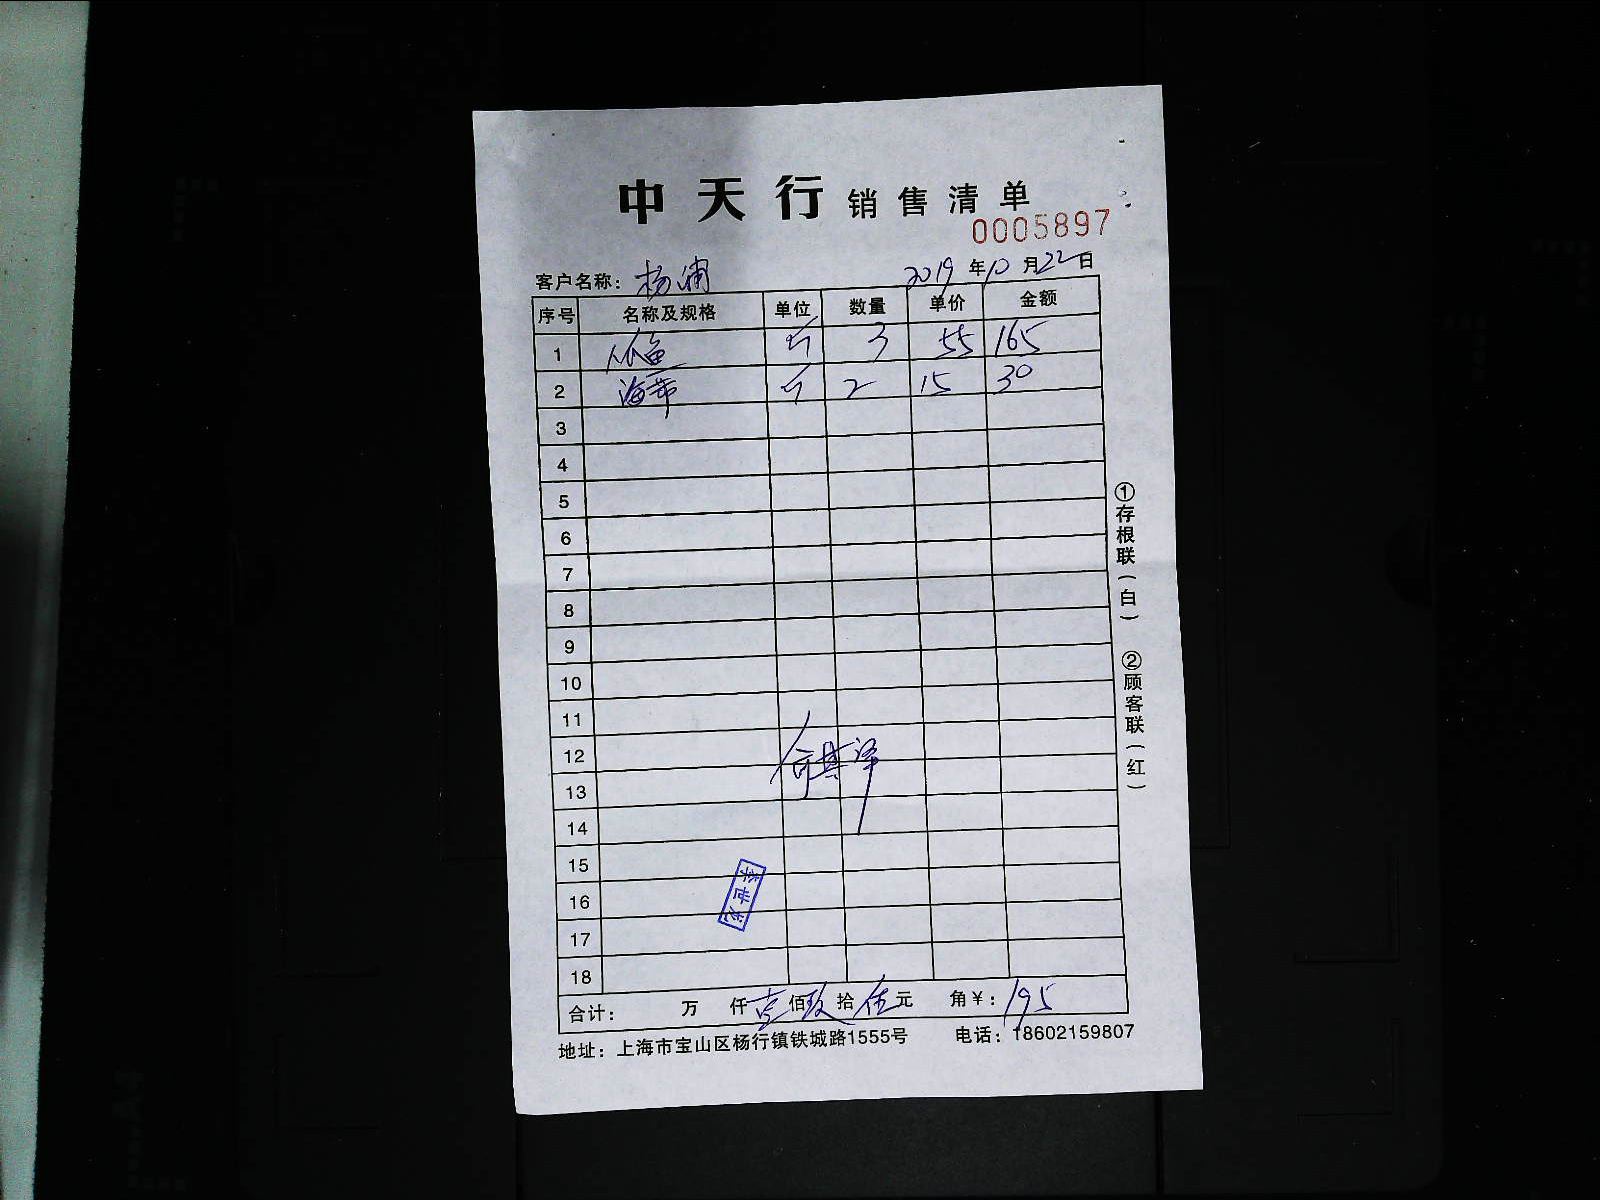 中天行 销售清单
0005897
客户名称： 杨浦 2019 年 10 月 22 日
序号 名称及规格 单位 数量 单价 金额
1 鱼 斤 3 55 165
2 海带 斤 2 15 30
3
4
5
6
7
8
9
10
11
12 何其泽
13
14
15
16
17
18
合计： 万 仟 壹 佰 玖 拾 伍 元 角 ￥：195
地址：上海市宝山区杨行镇铁城路1555号 电话：18602159807
①存根联（白） ②顾客联（红）